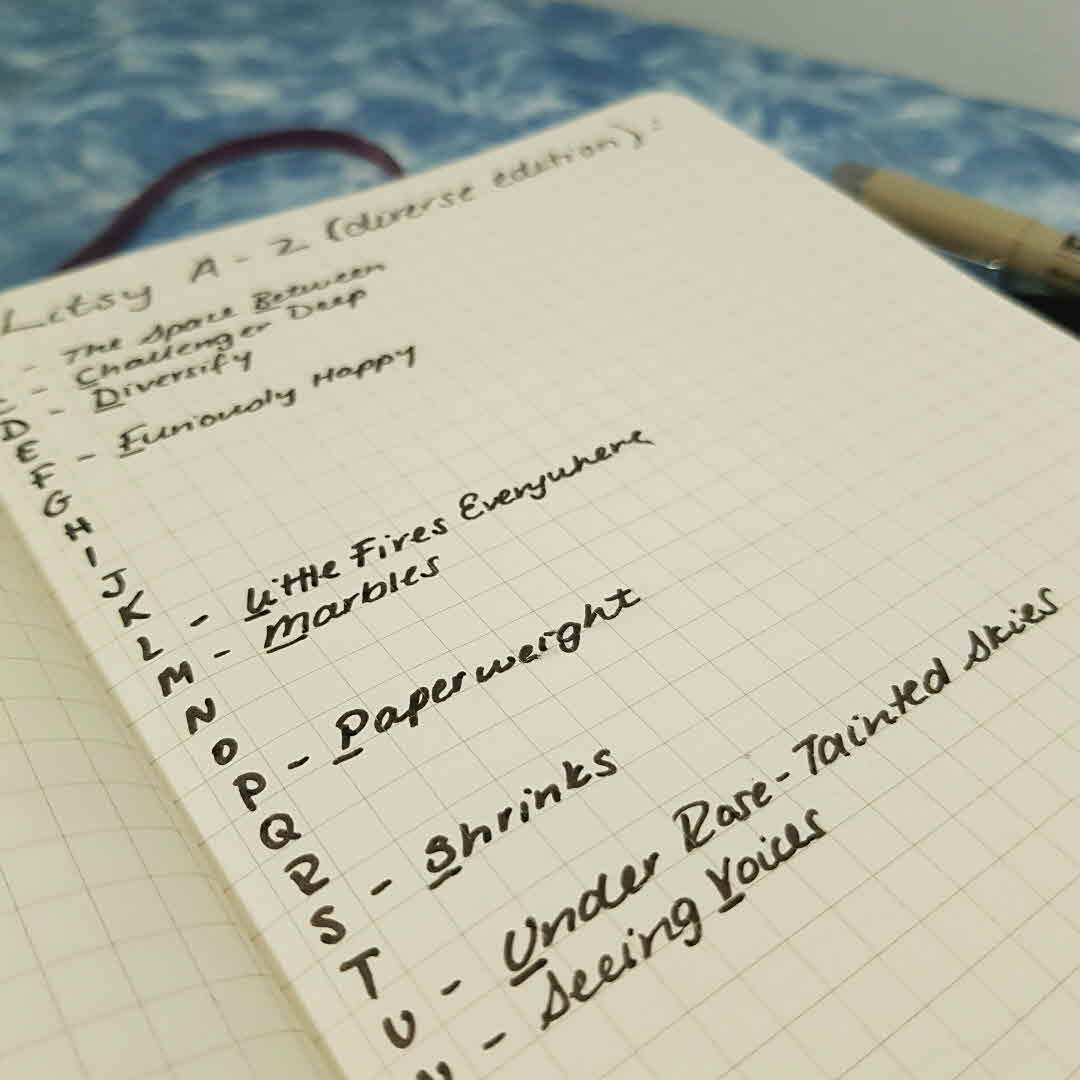 Litsy A - Z (diverse edition):
- The Space Between
C - Challenger Deep
D - Diversify
E
F - Furiously Happy
G
H
I
J
K
L - Little Fires Everywhere
M - Marbles
N
O
P - Paperweight
Q
R
S - Shrinks
T
U - Under Rose-Tainted Skies
V - Seeing Voices